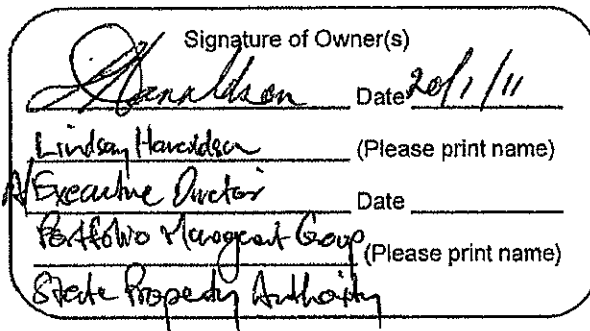 Signature of Owner(s)
Date 20/1/11
Lindsay Haraldson (Please print name)
A/Executive Director Date
Portfolio Management Group (Please print name)
State Property Authority